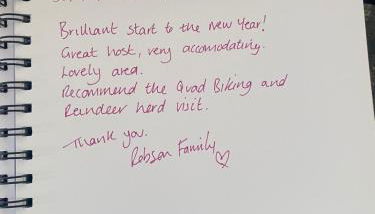 Brilliant start to the new year!
Great host, very accomodating.
Lovely area.
Recommend the Quad Biking and
Reindeer herd visit.
Thank you.
Robson Family